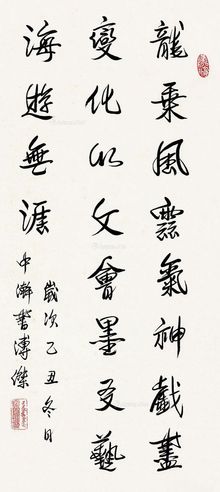 龍乘風雲氣神戲畫
變化以文會墨友藝
海遊無涯
歲次乙丑冬日
中瀚書溥傑